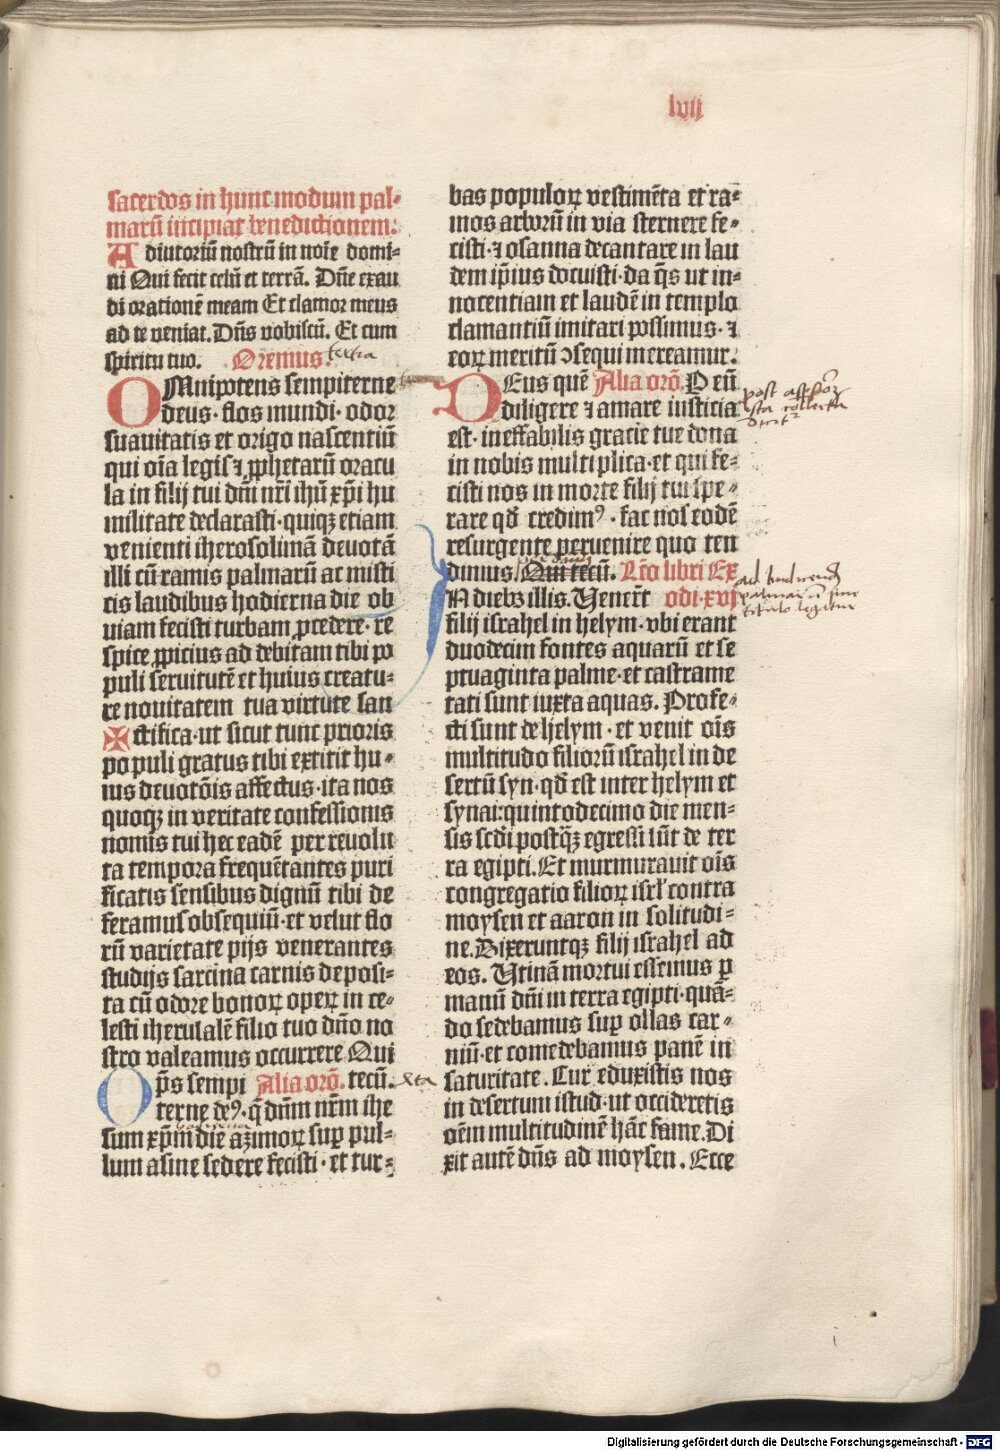 lvij
sacerdos in hunc modum pal-
marū incipiat benedictionem:
Adiutoriū nostrū in noīe domi-
ni Qui fecit celū et terrā. Dn̄e exau
di orationē meam Et clamor meus
ad te veniat. Dn̄s vobiscū. Et cum
spiritu tuo. Oremus. tertia
OMnip̄otens sempiterne
deus· flos mundi· odor
suauitatis et origo nascentiū
qui oīa legis ⁊ ꝓphetarū oracu
la in filij tui dn̄i nr̄i ihū xp̄i hu
militate declarasti·quiqꝫ etiam
venienti iherosolimā deuotā
illi cū ramis palmarū ac misti
cis laudibus hodierna die ob
uiam fecisti turbam ꝓcedere· re
spice ꝓpicius ad debitam tibi po
puli seruitutē et huius creatu-
re nouitatem tua virtute san
✠ ctifica·ut sicut tunc prioris
populi gratus tibi extitit hu-
ius deuotōis affectus·ita nos
quoqꝫ in veritate confessionis
nomis tui hec eadē per reuolu
ta tempora frequētantes puri
ficatis sensibus dignū tibi de
feramus obsequiū·et velut flo
rū varietate pijs venerantes
studijs sarcina carnis deposi-
ta cū odore bonoꝝ operꝝ in ce-
lesti iherusalē filio tuo dn̄o no
stro valeamus occurrere Qui
Op̄s sempi Alia orō. tecū.
terne deꝰ·q̄ dn̄m nr̄m ihe
sum xp̄m die azimoꝝ suꝑ pul-
lum asine sedere fecisti·et tur-
bas populoꝝ vestimēta et ra-
mos arborū in via sternere fe-
cisti·⁊ osanna decantare in lau
dem ip̄ius docuisti·da q̄s ut in-
nocentiam et laudē in templo
clamantiū imitari possimus·⁊
eoꝝ meritū ↄsequi mereamur.
DEus quē Alia orō. Deū
diligere ⁊ amare iusticia
est·ineffabilis gracie tue dona
in nobis multiplica·et qui fe-
cisti nos in morte filij tui spe-
rare qd̄ credimꝰ·fac nos eodē
resurgente peruenire quo ten
dimus Qui tecū. Lc̄o libri Ex
IN diebꝫ illis. Venerūt odi·xvj
filij israhel in helym·vbi erant
duodecim fontes aquarū et se
ptuaginta palme·et castrame
tati sunt iuxta aquas. Profe-
cti sunt de helym·et venit oīs
multitudo filiorū israhel in de
sertū syn·qd̄ est inter helym et
synai:quintodecimo die men-
sis scd̄i postqꝫ egressi sūt de ter
ra egipti. Et murmurauit oīs
congregatio filioꝝ isrl' contra
moysen et aaron in solitudi-
ne. Dixeruntqꝫ filij israhel ad
eos. Vtinā mortui essemus ꝑ
manū dn̄i in terra egipti·quā-
do sedebamus suꝑ ollas car-
niū·et comedebamus panē in
saturitate. Cur eduxistis nos
in desertum istud·ut occideretis
oēm multitudinē hāc fame. Di
xit autē dn̄s ad moysen. Ecce
Digitalisierung gefördert durch die Deutsche Forschungsgemeinschaft - DFG